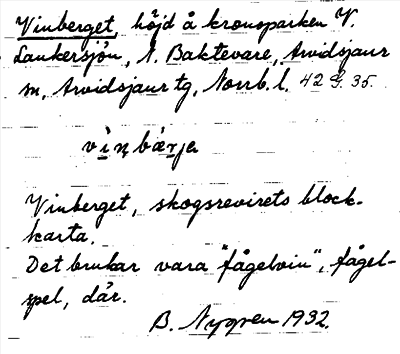 Vinberget, höjd å kronoparken V.
Laukersjön, N. Baktevare, Arvidsjaur
sn, Arvidsjaur tg, Norrb. l. 42 G. 35.
vìnbærje
Vinberget, skogsrevirets block-
karta.
Det brukar vara "fågelvin", fågel-
spel, där.
B. Nygren 1932.